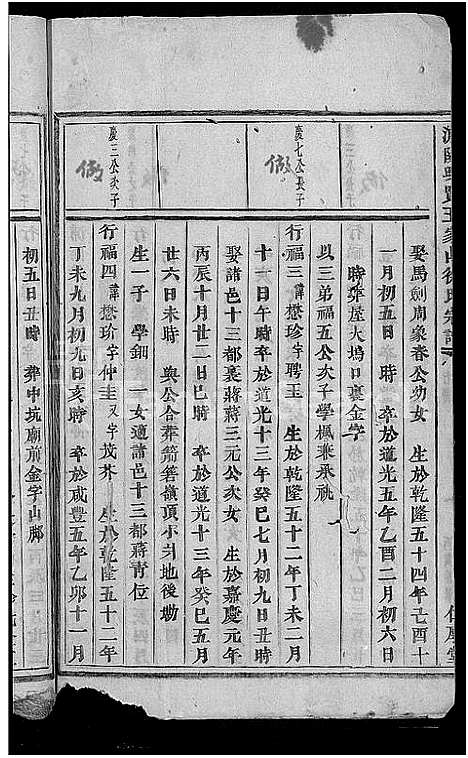 娶馬劍周象春公幼女 生於乾隆五十四年己酉十
一月初五日午時 卒於道光五年乙酉二月初六日
時葬屋大塢口裏金字
以三弟福五公次子學楓兼承祧
慶七公次子
行福三 諱懋珍字聘玉 生於乾隆五十二年丁未二月
十一日午時 卒於道光十三年癸巳七月初九日丑時
娶諸邑十三都裏蔣蔣三元公次女 生於嘉慶元年
丙辰十月廿二日巳時 卒於道光十三年癸巳五月
廿六日未時 與公合葬箭箬嶺頂小 地後塝
生一子 學鈿 一女適諸邑十三都蔣青位
慶三公次子
行福四 諱懋珍字仲圭又字茂芥 生於乾隆五十二年
丁未九月初九日亥時 卒於咸豐五年乙卯十一月
初五日丑時 葬中坑廟前金字山脚